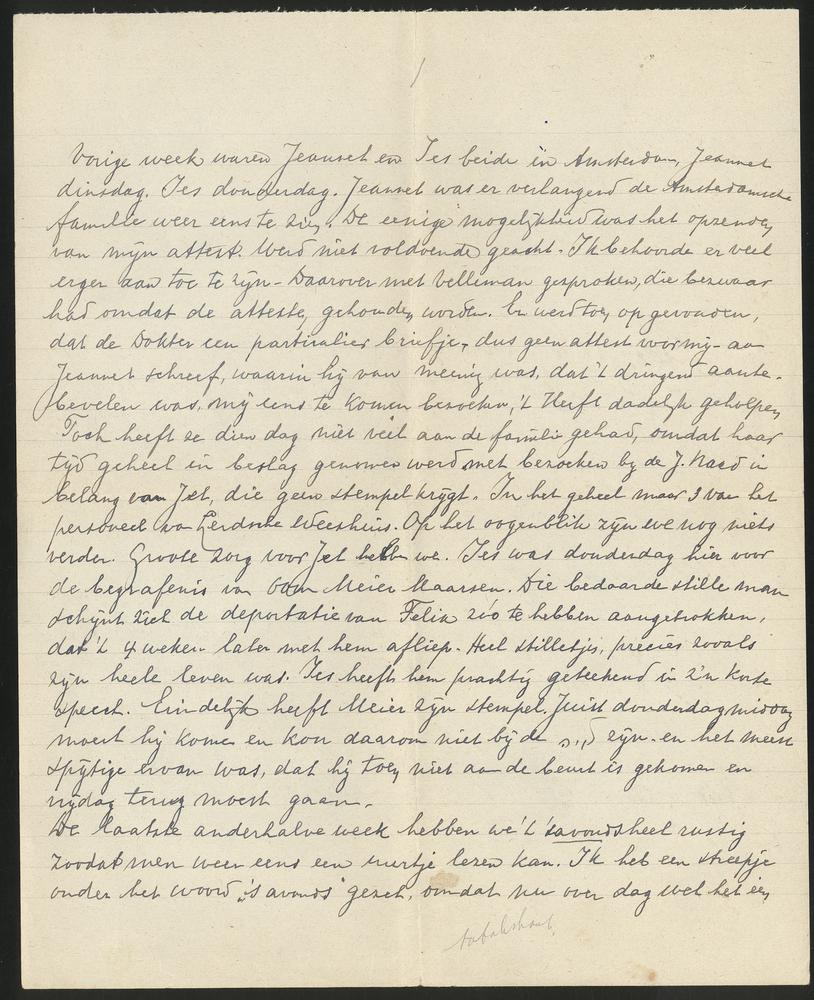 Vorige week waren Jeannet en Ies beide in Amsterdam, Jeannet
dinsdag. Ies donderdag. Jeannet was er verlangend de Amsterdamsche
familie weer eens te zien. De eenige mogelijkheid was het opzenden
van mijn attest. Werd niet voldoende geacht. Ik behoorde er veel
erger aan toe te zijn - Daarover met Velleman gesproken, die bezwaar
had omdat de atteste, gehouden worden. Er werd toen op gevonden,
dat de Dokter een particulier briefje, dus geen attest voor mij - aan
Jeannet schreef, waarin hij van meening was, dat 't dringend aante-
bevelen was, mij eens te komen bezoeken, 't Heeft dadelijk geholpen
Toch heeft ze dien dag niet veel aan de familie gehad, omdat haar
tijd geheel in beslag genomen werd met bezoeken bij de J. Raad in
belang van Jet, die geen stempel krijgt. In het geheel maar 3 van het
personeel van Leidsche Weeshuis. Op het oogenblik zijn we nog niets
verder. Groote zorg voor Jet hebben we. Ies was donderdag hier voor
de begrafenis van oom Meier Maarsen. Die bedaarde stille man
schijnt zich de deportatie van Felix zóó te hebben aangetrokken,
dat 't 4 weken later met hem afliep. Heel stilletjes, precies zooals
zijn heele leven was. Ies heeft hem prachtig geteekend in z'n korte
speech. Eindelijk heeft Meier zijn stempel. Juist donderdagmiddag
moest hij komen en kon daarom niet bij de zijn. en het meest
spijtige ervan was, dat hij toen niet aan de beurt is gekomen en
vrijdag terug moest gaan.
De laatste anderhalve week hebben we 't 's avonds heel rustig
zoodat men weer eens een uurtje lezen kan. Ik heb een streepje
onder het woord „'s avonds" gezet, omdat nu over dag wel het een